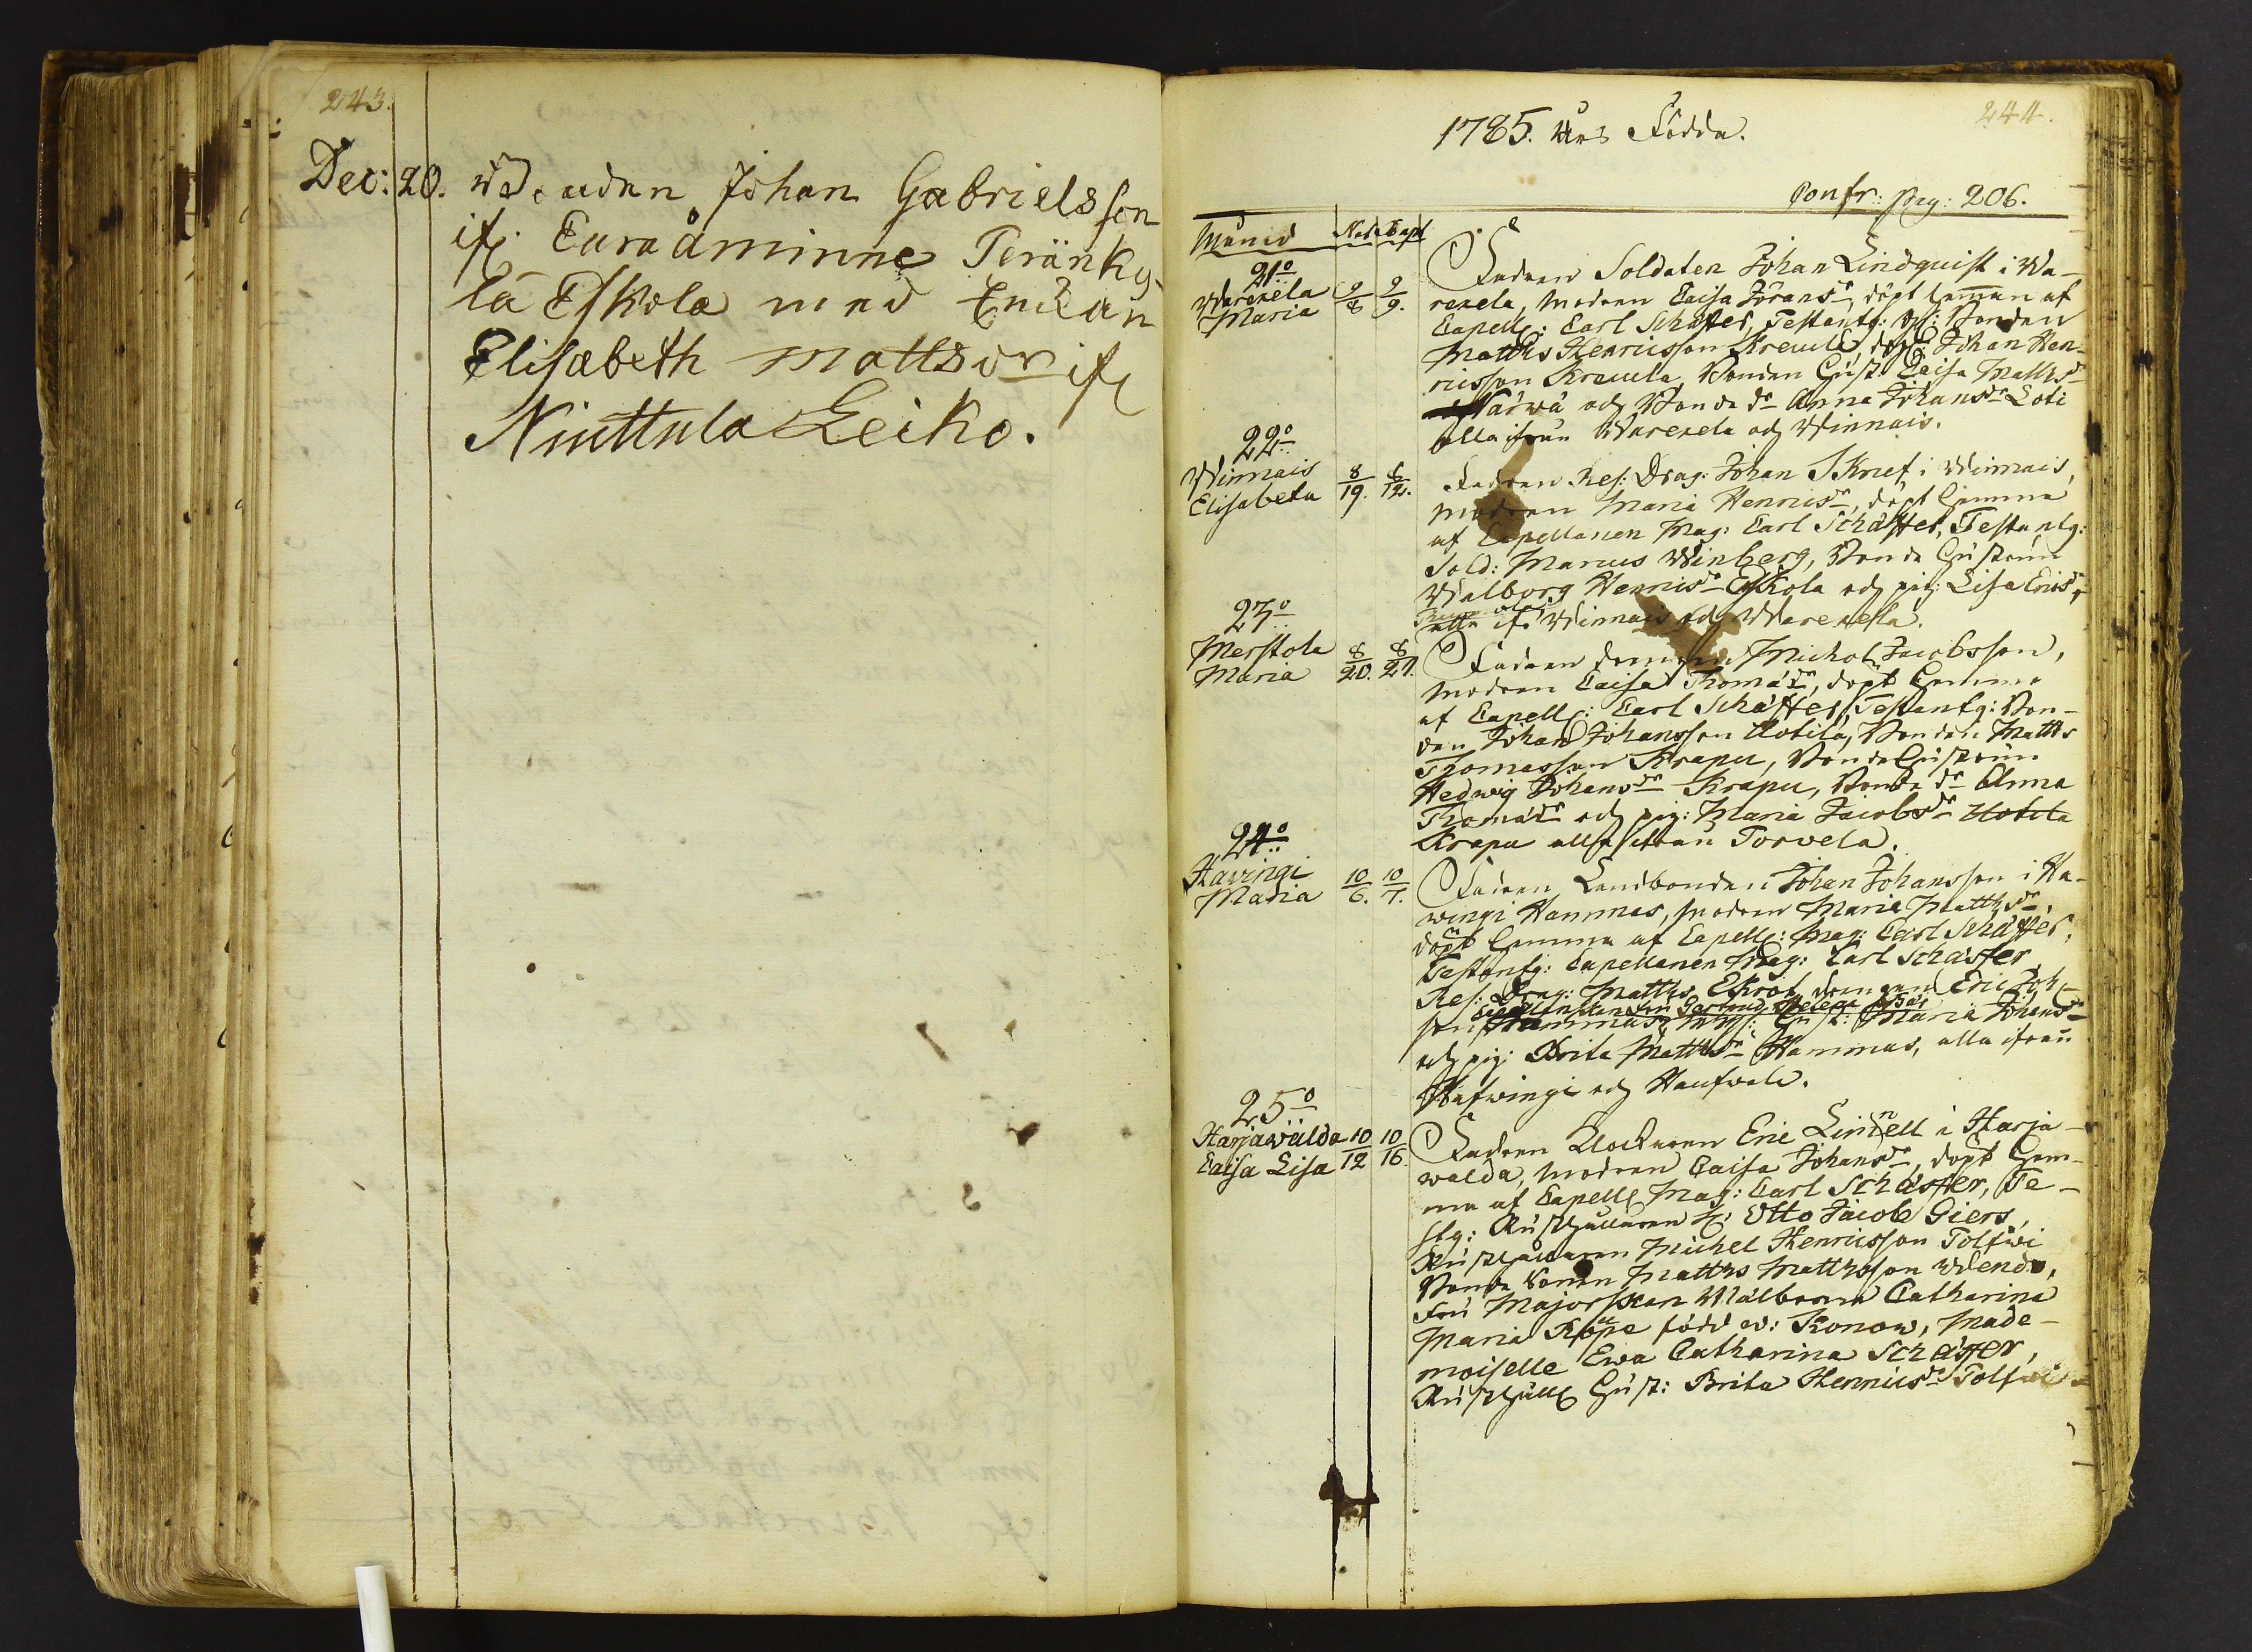 243.
Dec: 20. Johan Gabrielsson
ifr. Euraåminne Peränky-
lä Eskola med Enkan
Elisabeth Mattsdr ifr
Niuttula Leiko.
244.
1785. Års Födda.
Confr: pag: 206.
Månad Nat. Bapt
21o
Warexela
Maria
2/8 2/9.
Fadren Soldaten Johan Lindquist i Wa-
rexela, Modren Caisa Jöransdr, döpt hemma af
Capell: Carl Schäffer, Testantg: Bonden
Matths Henricsson Kreula, Johan Hen-
ricsson Kreula, Bondens Hust: Caisa Matthsdr
och Bonde dr Anna Johansdr Loti
alla ifrån Warexela och Winnais.
22o
Winnais
Elisabeta
8/19. 8/19.
Fadren Res: Drag: Johan Skrief i Winnais,
Modren Maria Henricsdr, döpt hemma
af Capellanen Mag: Carl Schäffer, Testantg:
Sold: Marcus Winberg, Bonde Hustrun
Walborg Henricsdr Eskola och pig: Lisa Ericsdr
alla ifr Winnais och Warexela.
23o
Merstola
Maria
8/20. 8/21.
Fadren drengen Michel Jacobsson,
Modren Caisa Thomädr, döpt hemma
af Capell: Carl Schäffer, Testantg: Bon-
den Johan Johansson Uotila, Bonden Matths
Thomasson Krapu, Bonde Hustrun
Hedwig Johansdr Krapu, Bonde dr Anna
Thomädr och pig: Maria Jacobsdr Uotila
Krapu alla ifrån Torvela.
24o
Havingi
Maria
10/6. 10/7.
Fadren Landbonden Johan Johansson i Ha-
wingi Hammas, Modren Maria Matthsdr,
döpt hemma af Capell: Mag: Carl Schäffer,
Testantg: Capellanen Mag: Carl Schäffer
Res: Drag: Matths Ekrot, drengen Eric Joh-
son Hammas, Hust: Maria Johansdr
och pig: Brita Matthsdr Hammas, alla ifrån
Hafwingi och
25o
Harjawalda
Caisa Lisa
10/12 10/16.
Fadren Klockaren Eric Linnell i Harja-
walda, Modren Caisa Johansdr, döpt hem-
ma af Capell Mag: Carl Schäffer, Te-
stg: Rusthållaren H: Otto Jacob Giers,
Rusthållaren Michel Henricsson Tolfwi
Bonde Sonen Matths Matthsson Wend,
Fru Majorskan Wälborna Catharina
Maria Pöpe född v: Konow, Made-
moiselle Ewa Catharina Schäffer,
Rusthåll Hust: Brita Henricsdr Tolfwi